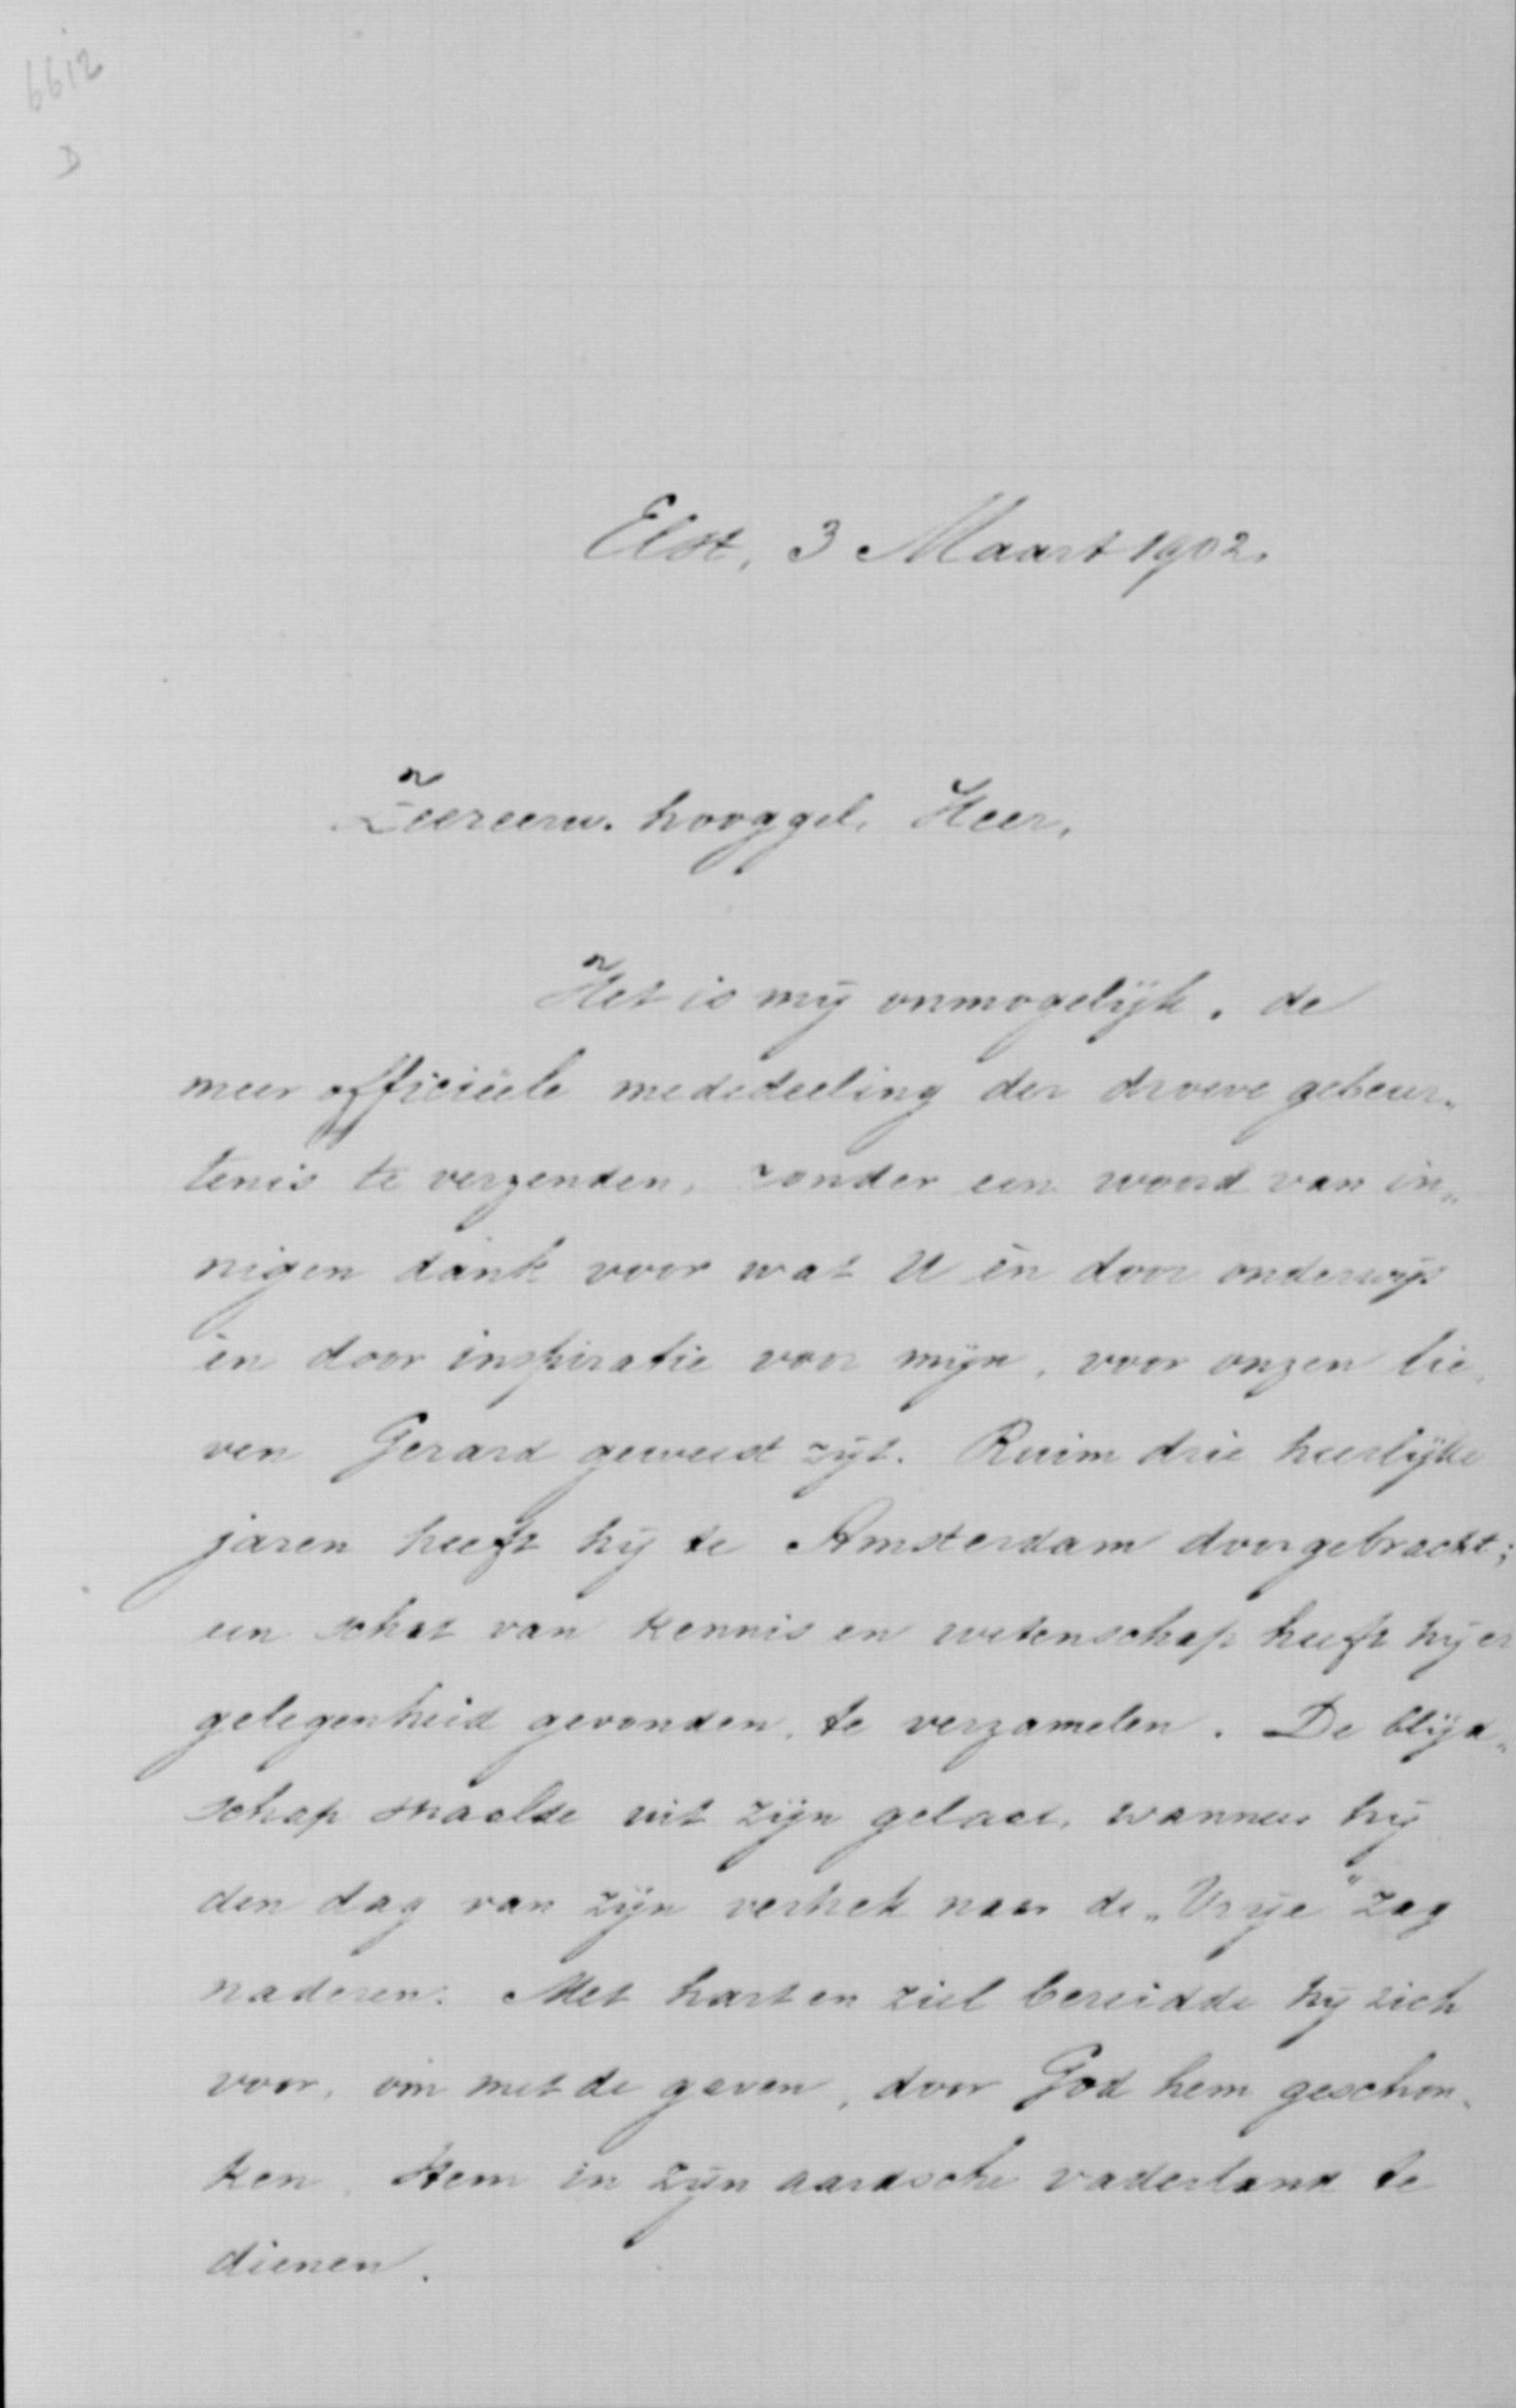 6612
D
Elst, 3 Maart 1902.
Zeereerw. hooggel. Heer,
Het is mij onmogelijk, de
meer officiëele mededeeling der droeve gebeur„
tenis te verzenden, zonder een woord van in„
nigen dank voor wat U èn door onderwijs
èn door inspiratie voor mijn, voor onzen lie„
ven Gerard geweest zijt. Ruim drie heerlijke
jaren heeft hij te Amsterdam doorgebracht;
een schat van kennis en wetenschap heeft hij er
gelegenheid gevonden, te verzamelen. De blijd„
schap straalde uit zijn gelaat, wanneer hij
den dag van zijn vertrek naar de „Vrije" zag
naderen. Met hart en ziel bereidde hij zich
voor, om met de gaven, door God hem geschon„
ken, Hem in zijn aardsche vaderland te
dienen.